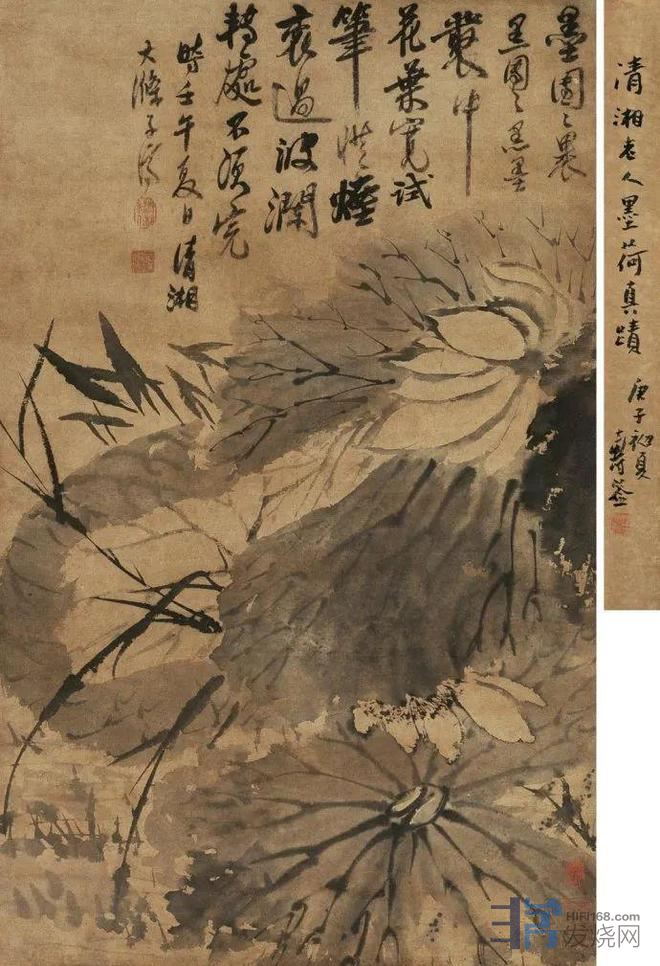 墨團〻裏
黑團〻黑墨
叢中
花葉寬試
筆從煙
裏過波瀾
轉處不須完
時壬午夏日清湘
大滌子濟
清湘老人墨荷真蹟
庚子初夏
HIFI168.com
发烧网